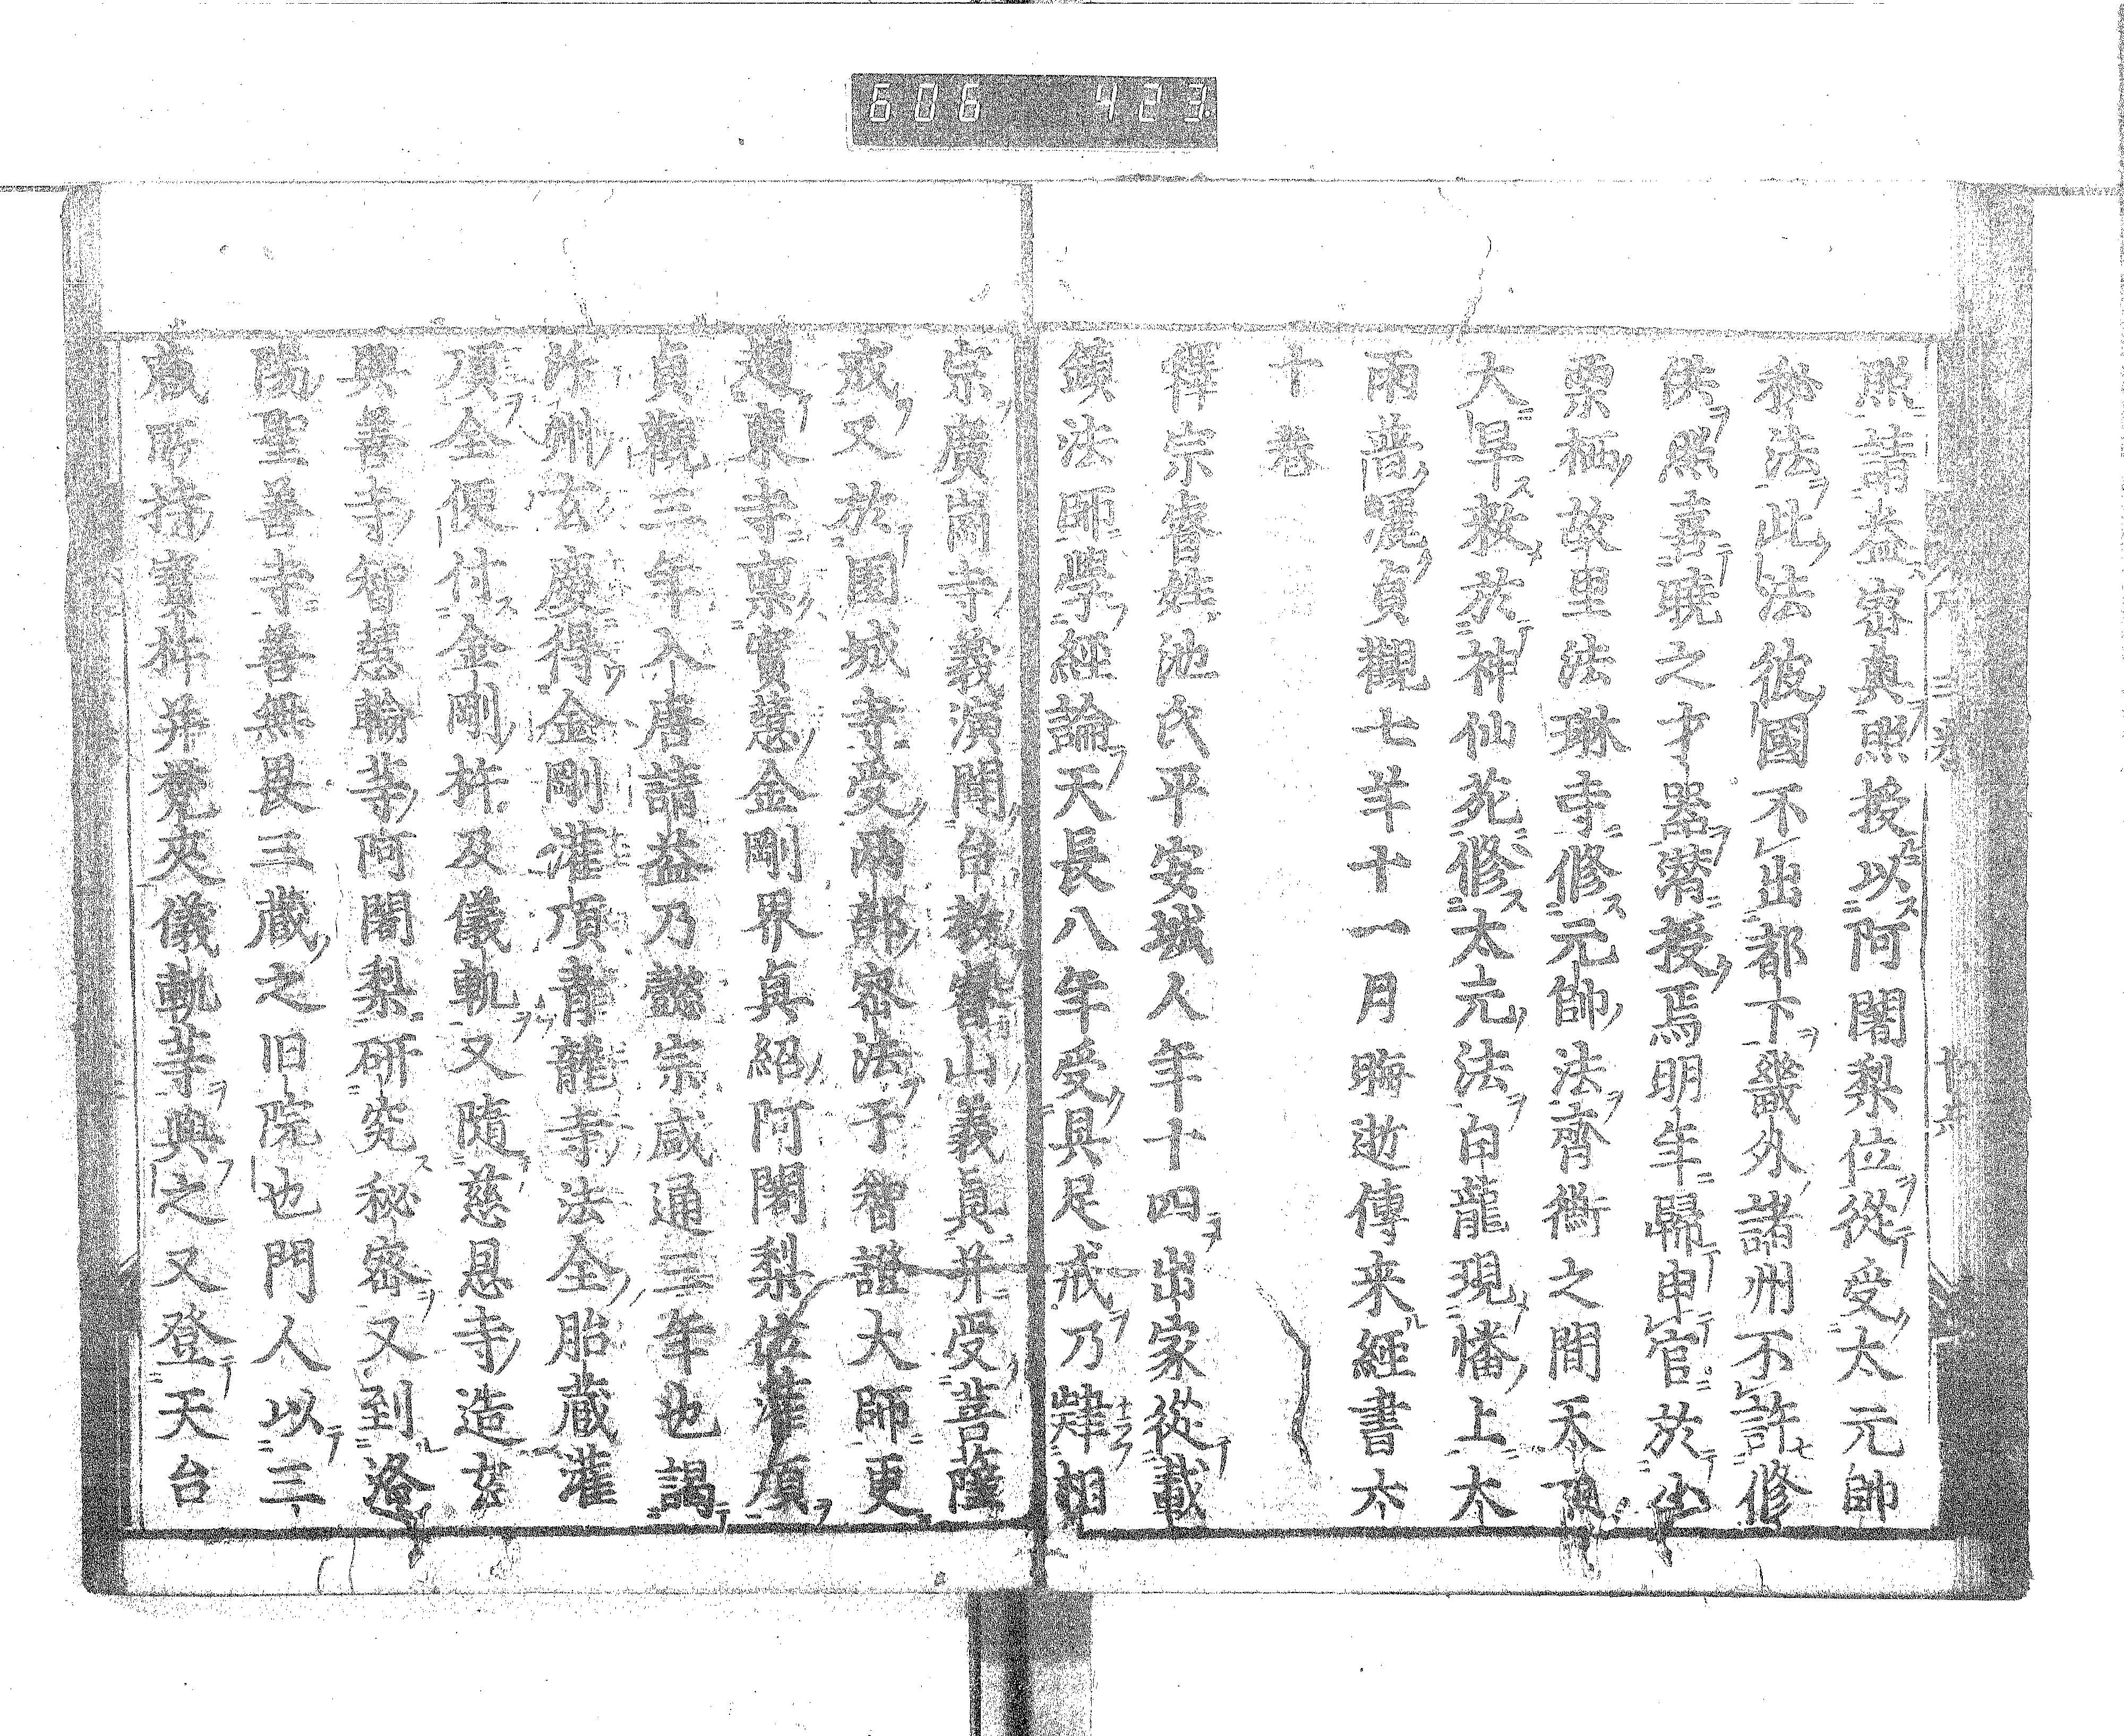 606 423
照請益密奥照授以阿闍梨位從受太元帥
秘法此法彼國不出都下畿外諸州不許修
供照喜曉之才器潜授焉明年歸申官於山
栗栖故里法琳寺修元帥法齊衡之間天下
大旱救於神仙苑修太元法白龍現幡上大
雨普灑貞觀七年十一月晦逝傳来經書六
十巻
釋宗睿姓池氏平安城人年十四出家從載
鎮法師學經論天長八年受具足戒乃肄相
宗廣岡寺義演聞台教睿山義真并受菩薩
戒又於園城寺受兩部密法于智證大師更
迴東寺禀實慧金剛界眞紹阿闍梨位灌頂
貞觀三年入唐請益乃懿宗咸通三年也謁
汴州玄慶得金剛灌頂青龍寺法全胎藏灌
頂全便付金剛杵及儀軌又隨慈恩寺造玄
興善寺智慧輪等阿闍梨研究秘密又到洛
陽聖善寺善無畏三藏之旧院也門人以三
藏所持寳杵并梵夾儀軌等與之又登天台